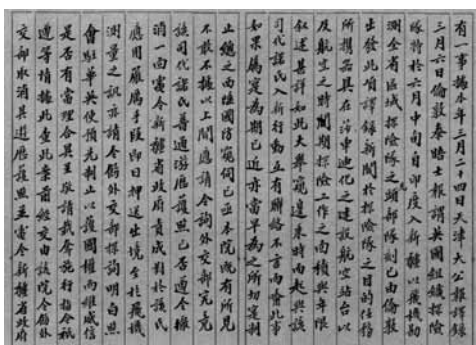 有一事據本年三月二十四日天津大公報譯錄
三月六日倫敦泰晤士報謂英國組織探險
隊將於六月中旬自印度入新疆以飛機勘
測全省區域探險隊之頭部隊刻已由倫敦
出發此項譯錄新聞於探險隊之目的任務
所攜器具在迪化之建設航空站台以
及航空之時間期探險工作之面積與年限
叙述甚詳如此大舉窺邊東時而起與該
司代諾氏入新行動互有聯絡不言而喻此事
如果屬實為期已近亦當早為之所切實制
止總之西陲國防窺伺已亟本院既有所見
不敢不據以上聞應請令詢外交部究竟
該司代諾氏普通游歷護照已否遵令繳
消一面電令新疆省政府責成對於該氏
應用嚴厲手段即日押送出境至於飛機
測量之訊亦請令飭外交部探詢明白照
會駐華英使預先制止以護國權而維威信
是否有當理合具呈敬請裁奪施行指令祇
遵等情據此查此案前經交由該院令飭外
交部取消其遊歷護照並電令新疆省政府